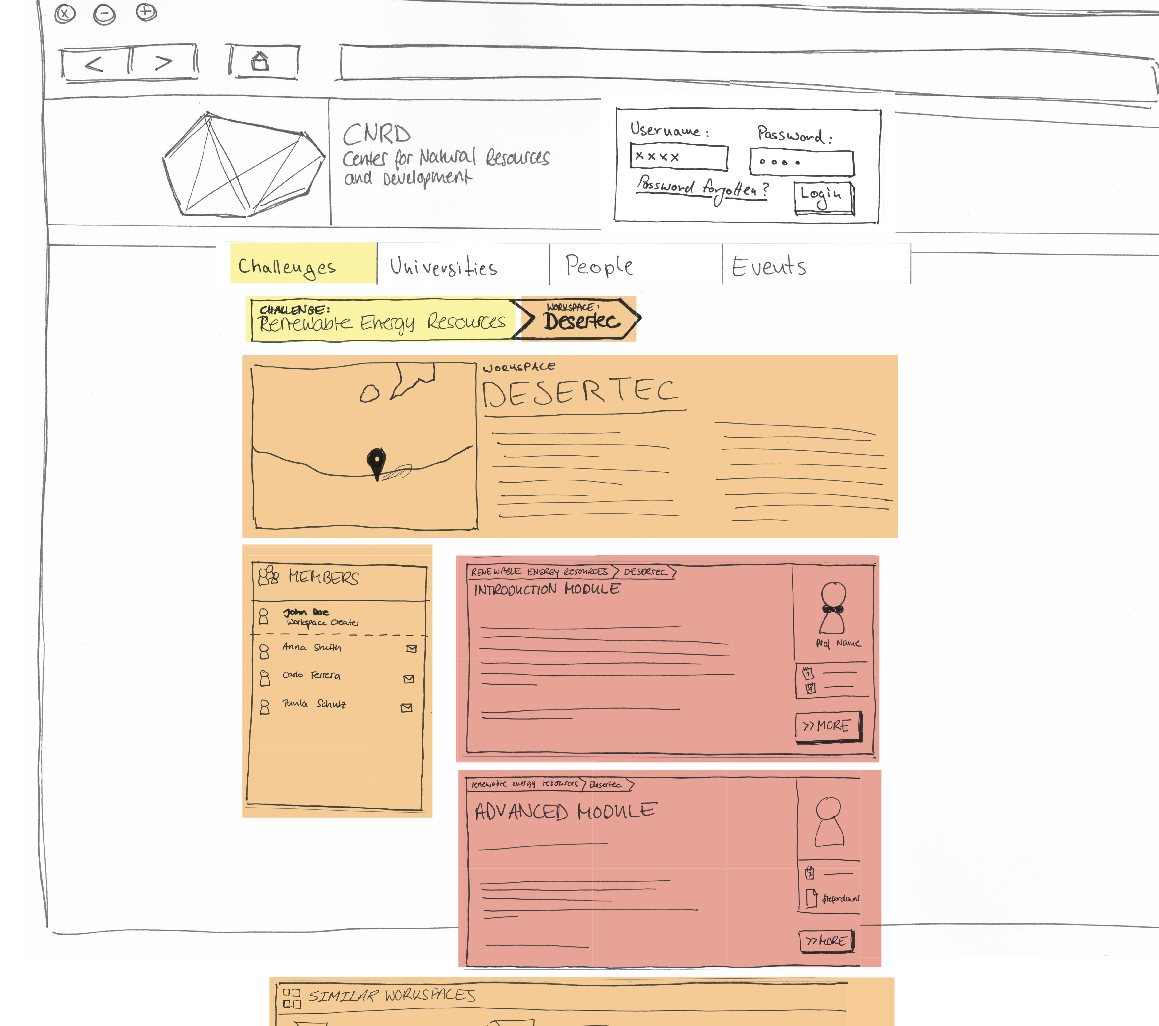 CNRD
Center for Natural Resources
and Development
Username:
Password:
xxxx
Password forgotten?
Login
Challenges
Universities
People
Events
CHALLENGE:
Renewable Energy Resources
WORKSPACE:
Desertec
WORKSPACE
DESERTEC
MEMBERS
John Doe
Workspace Creater
Anna Smith
Carlo Ferrera
Paula Schulz
RENEWABLE ENERGY RESOURCES
DESERTEC
INTRODUCTION MODULE
Prof Name
>>MORE
renewable energy resources
Desertec
ADVANCED MODULE
>>MORE
SIMILAR WORKSPACES